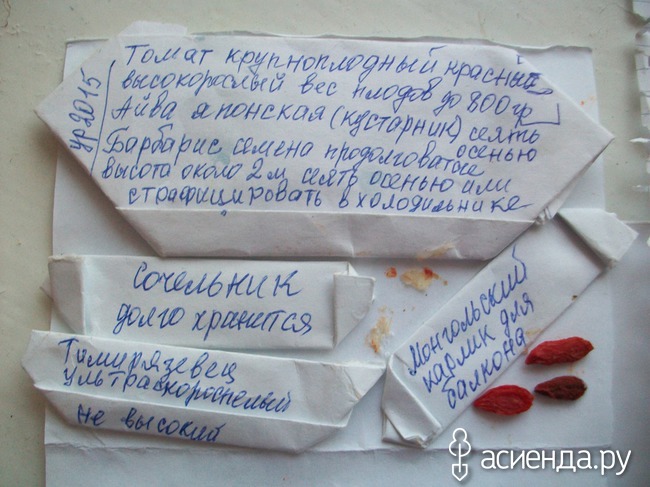 Томат крупноплодный красный
высокорослый вес плодов до 800 гр
Айва японская (кустарник) сеять
осенью
Барбарис семена продолговатые
высота около 2 м сеять осенью или
страфицировать в холодильнике
ур 2015
Сочельник
долго хранится
Тимирязевец
ультраскороспелый
не высокий
Монгольский
карлик для
балкона
асиенда.ру